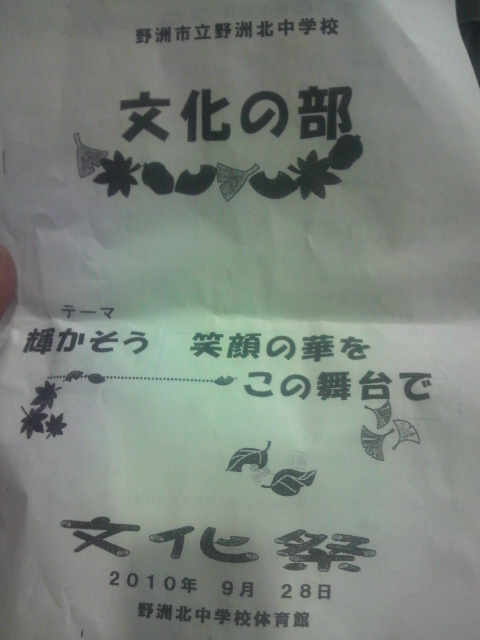 野洲市立野洲北中学校
文化の部
テーマ
輝かそう 笑顔の華を
この舞台で
文化祭
2010年 9月 28日
野洲北中学校体育館